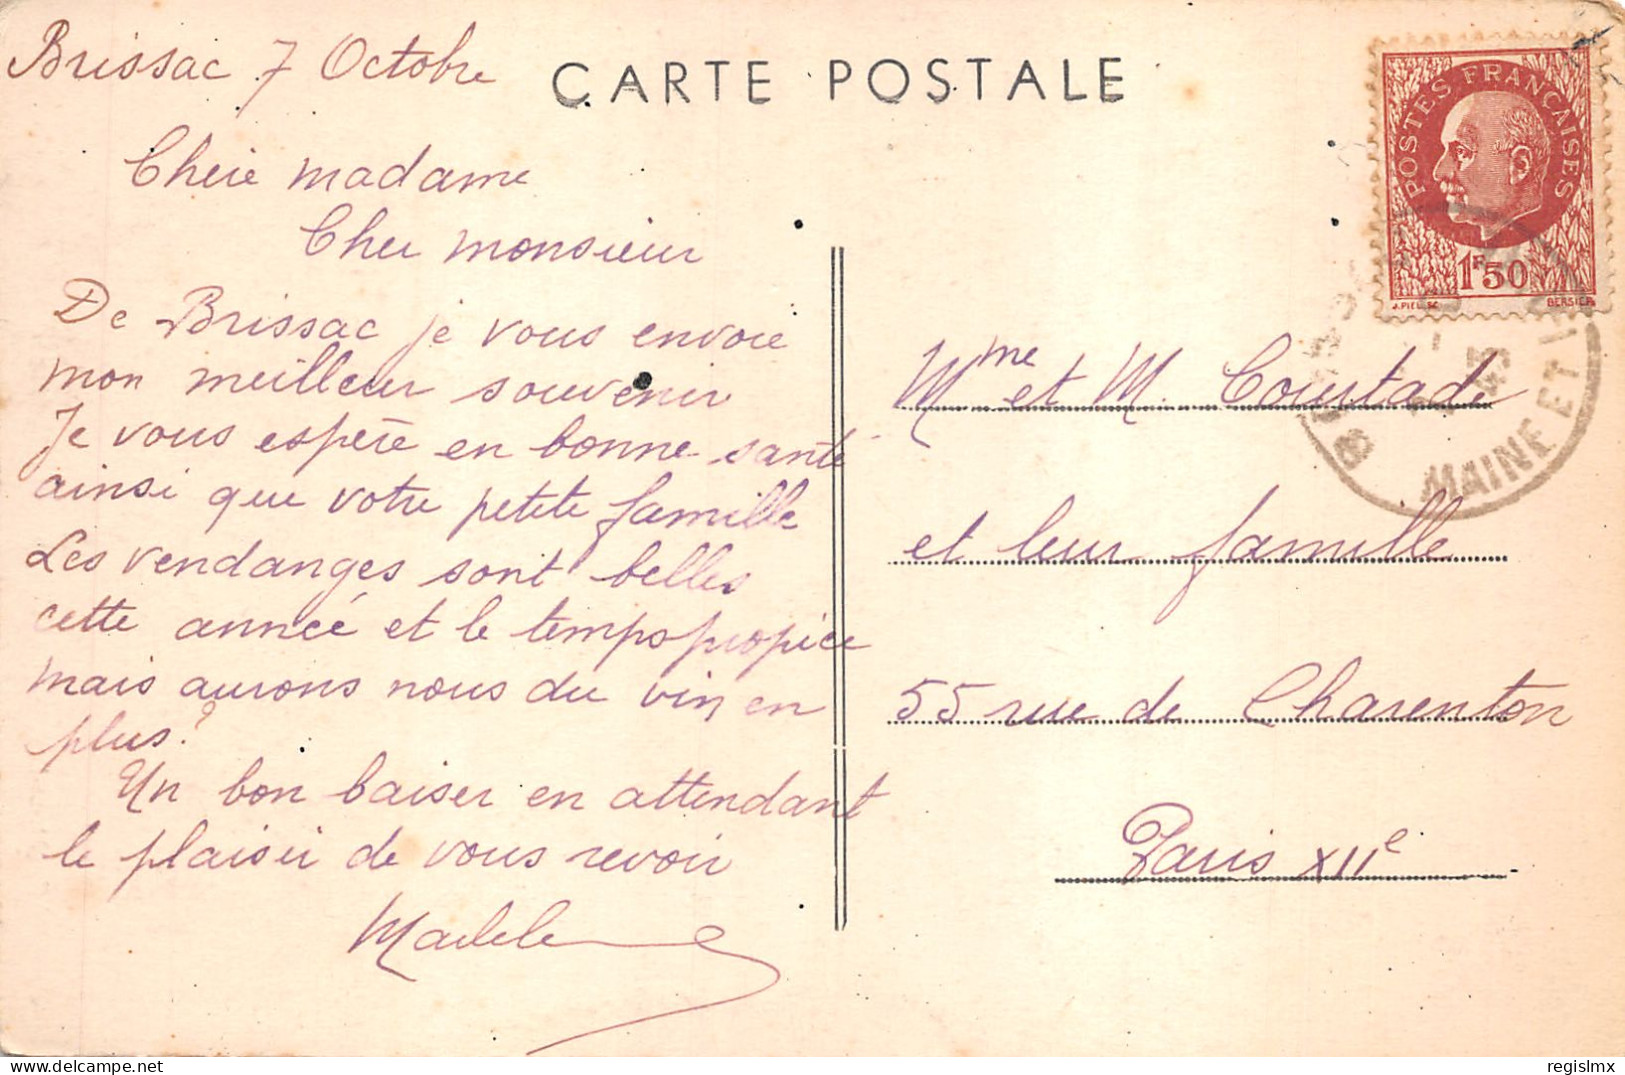 Brissac 7 Octobre
CARTE POSTALE
Chère madame
Cher monsieur
De Brissac je vous envoie
mon meilleur souvenir
Je vous espère en bonne santé
ainsi que votre petite famille
Les vendanges sont belles
cette année et le temps propice
mais aurons nous du vin en
plus?
Un bon baiser en attendant
le plaisir de vous revoir
POSTES FRANÇAISES
1F50
J. PIEL SC. BERSIER
MAINE ET
Mme et M. Courtade
et leur famille
55 rue de Charenton
Paris XIIe
regislmx